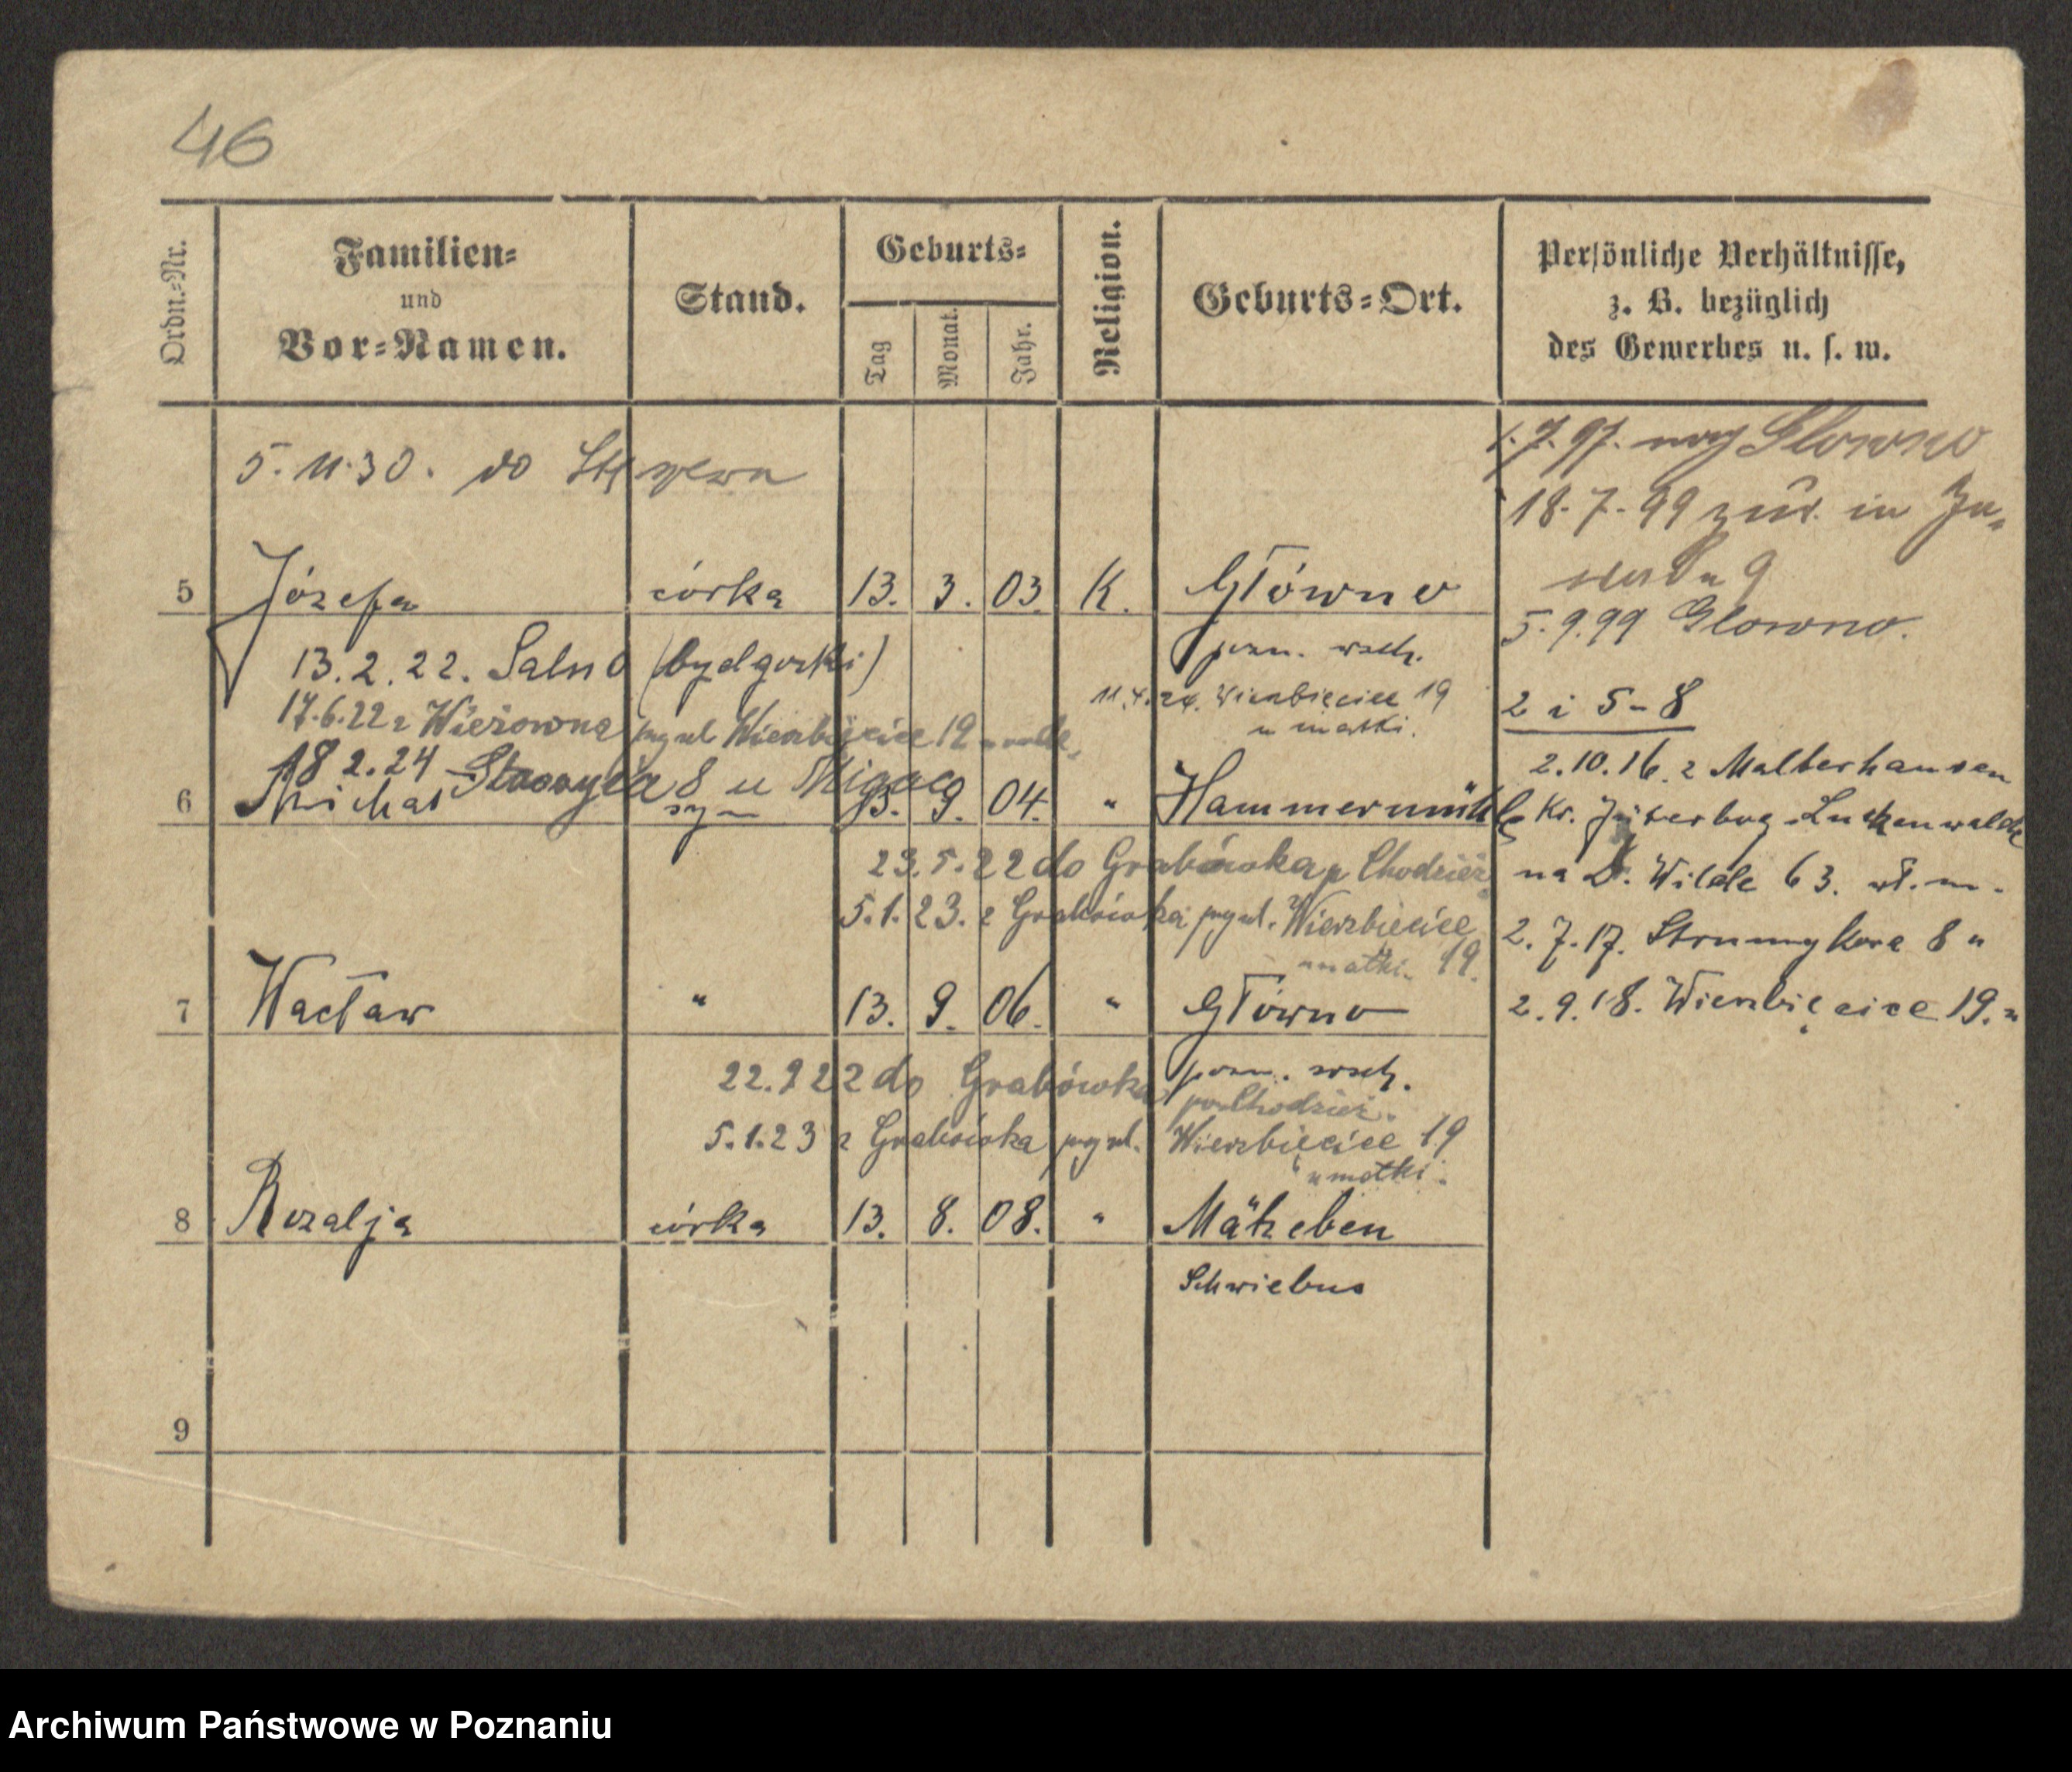 46
Ordn.-Nr.
Familien-
und
Vor-Namen.
Stand.
Geburts-
Tag
Monat.
Jahr.
Religion.
Geburts-Ort.
Persönliche Verhältnisse,
z. B. bezüglich
des Gewerbes u. s. w.
5. 11. 30. do
1. 7. 97. Glowno
18. 7. 99 zur. in
5 Józefa córka 13. 3. 03. K. Główno
5. 9. 99 Glowno.
13. 2. 22. Salno (bydgoski) pozn. wsch.
17.6.22 z Wierzbięcice 19
11.4.24. Wierzbięcice 19
u matki.
2 i 5-8
18 2. 24 8 u
2.10.16. z Malterhausen
6 Michał syn 13. 9. 04. " Hammermühle
Kr. Jüterbog-Luckenwalde
23.5.22 do Grabówka p Chodzież
na D. Wilde 63. wł. m.
5.1.23. z Grabówka Wierzbięcice
u matki. 19.
2. 7. 17. Strumykowa 8 "
7 Wacław " 13. 9. 06. " Główno
2. 9. 18. Wierzbięcice 19. "
pozn. wsch.
22. 9 22 do Grabówka
pow Chodzież.
5.1.23 z Grabówka Wierzbięcice 19
u matki.
8 Rozalja córka 13. 8. 08. "
Schwiebus
9
Archiwum Państwowe w Poznaniu